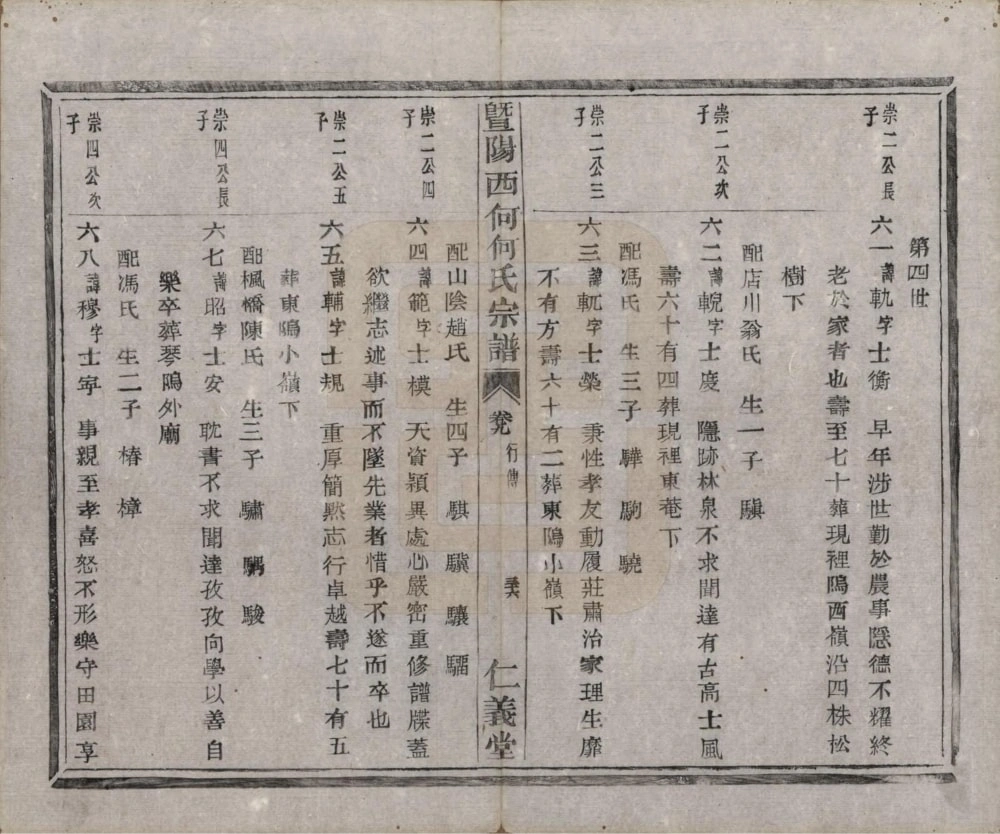 第四世
崇二公長子
六一諱軌字士衡 早年涉世勤於農事隱德不耀終
老於家者也壽至七十葬現裡塢西嶺沿四株松
樹下
配店川翁氏 生一子 騏
崇二公次子
六二諱輗字士度 隱跡林泉不求聞達有古高士風
壽六十有四葬現裡東菴下
配馮氏 生三子 驊 駒 驍
崇二公三子
六三諱軏字士榮 秉性孝友動履莊肅治家理生靡
不有方壽六十有二葬東塢小嶺下
暨陽西何何氏宗譜 卷 行傳 仁義堂
配山陰趙氏 生四子 騏 驥 驤 騮
崇二公四子
六四諱範字士模 天資穎異處心嚴密重修譜牒蓋
欲繼志述事而不墜先業者惜乎不遂而卒也
崇二公五子
六五諱輔字士規 重厚簡黙志行卓越壽七十有五
葬東塢小嶺下
配楓橋陳氏 生三子 驌 騆 駿
崇四公長子
六七諱昭字士安 耽書不求聞達孜孜向學以善自
樂卒葬琴塢外廟
配馮氏 生二子 椿 樟
崇四公次子
六八諱穆字士寜 事親至孝喜怒不形樂守田園享